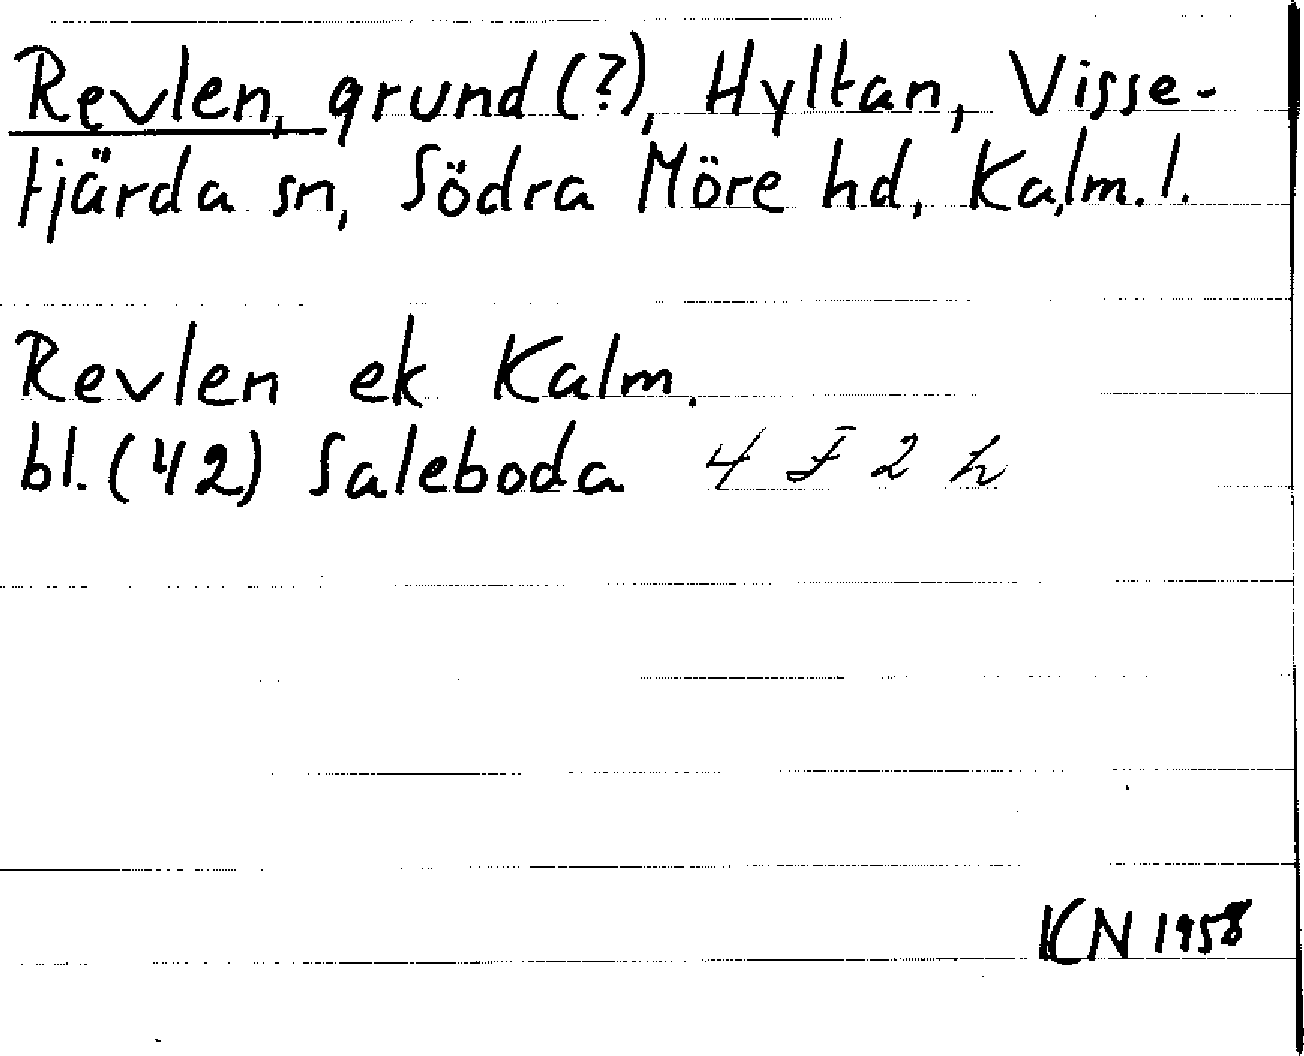 Revlen, grund (?), Hyltan, Visse-
fjärda sn, Södra Möre hd, Kalm. l.
Revlen ek Kalm.
bl. (42) Saleboda 4 F 2 h
KN 1958